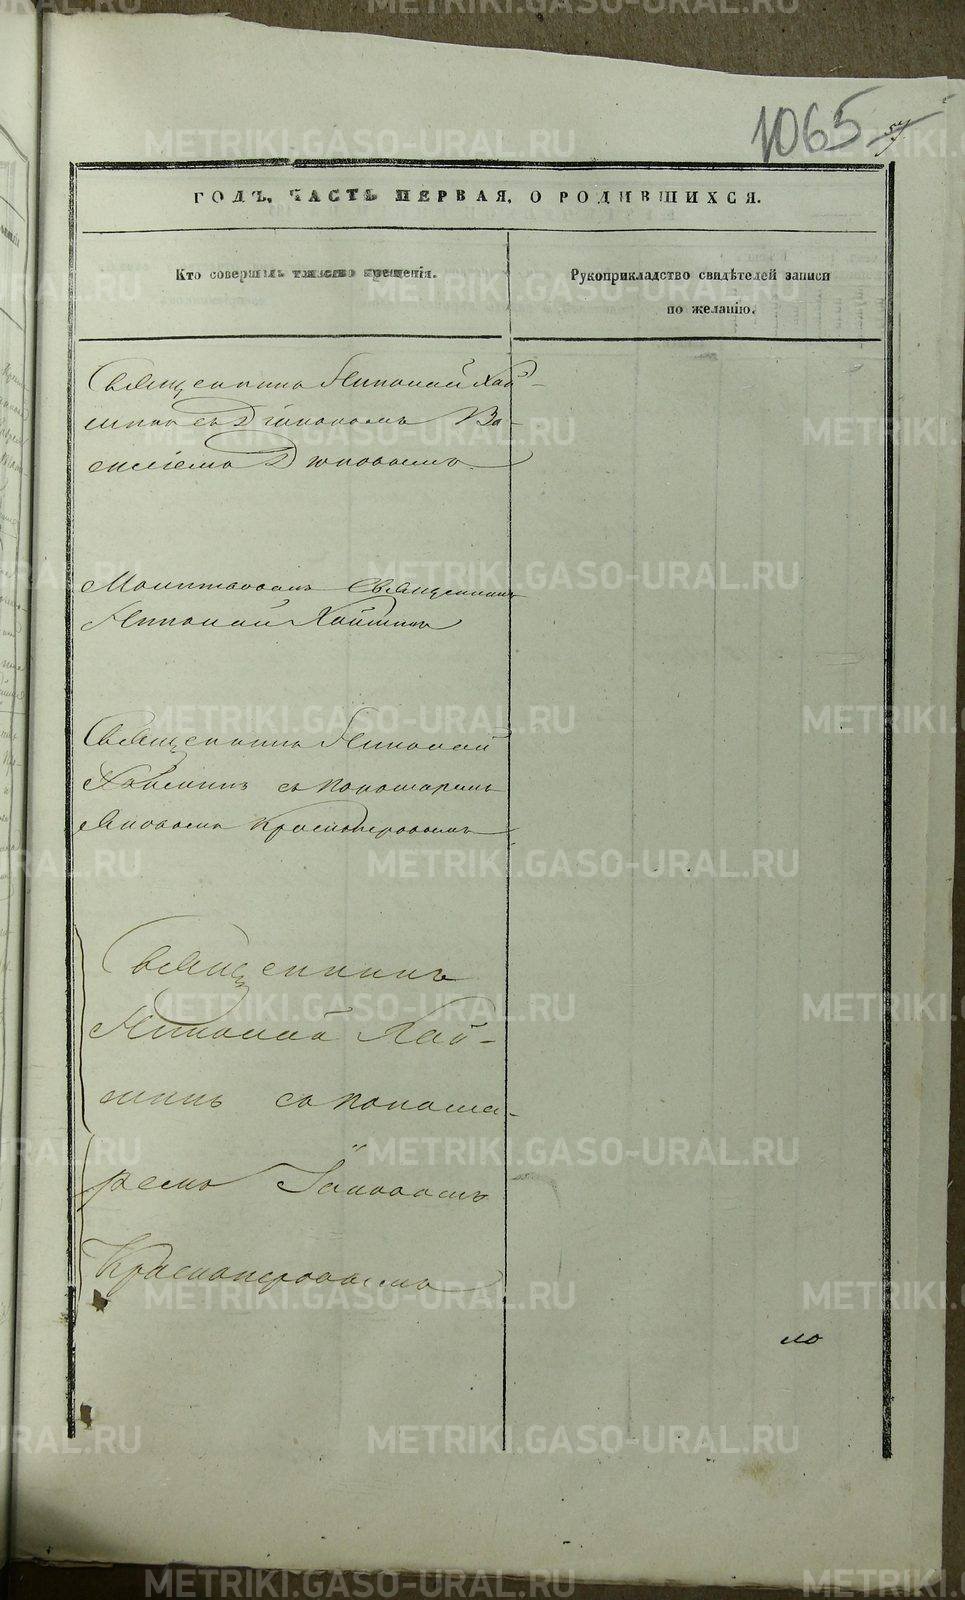 1065 57
ГОДЪ, ЧАСТЬ ПЕРВАЯ, О РОДИВШИХСЯ.
Кто совершалъ таинство крещенія.
Рукоприкладство свидѣтелей записи
по желанію.
Священникъ Николай Хай-
минъ съ Діакономъ Ва-
силіемъ
Молитвовалъ Священникъ
Николай Хайминъ
Священникъ Николай
Хайминъ съ пономаремъ
Яковомъ Краснопѣровымъ
Священникъ
Николай Хай-
минъ съ понома-
ремъ Іаковомъ
Краснопѣровымъ
METRIKI.GASO-URAL.RU